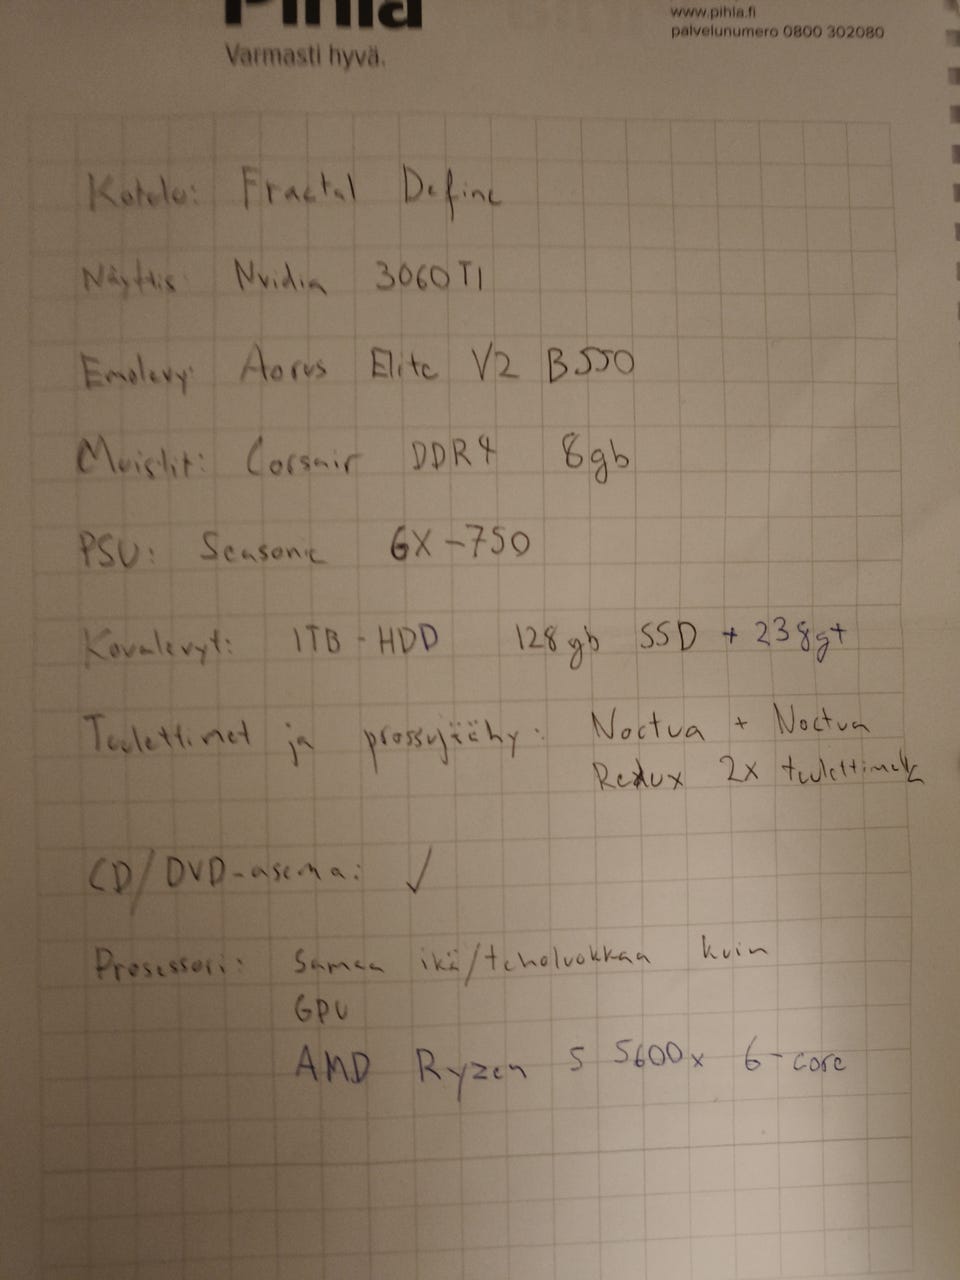 Pihla
Varmasti hyvä.
www.pihla.fi
palvelunumero 0800 302080
Kotelo: Fractal Define
Näyttis: Nvidia 3060TI
Emolevy: Aorus Elite V2 B550
Muistit: Corsair DDR4 8gb
PSU: Seasonic GX-750
Kovalevyt: 1TB - HDD 128gb SSD + 238gt
Tuulettimet ja prossujäähy: Noctua + Noctua
Redux 2x tuulettimet
CD/DVD-asema: ✓
Prosessori: Samaa ikä/teholuokkaa kuin
GPU
AMD Ryzen 5 5600x 6-core